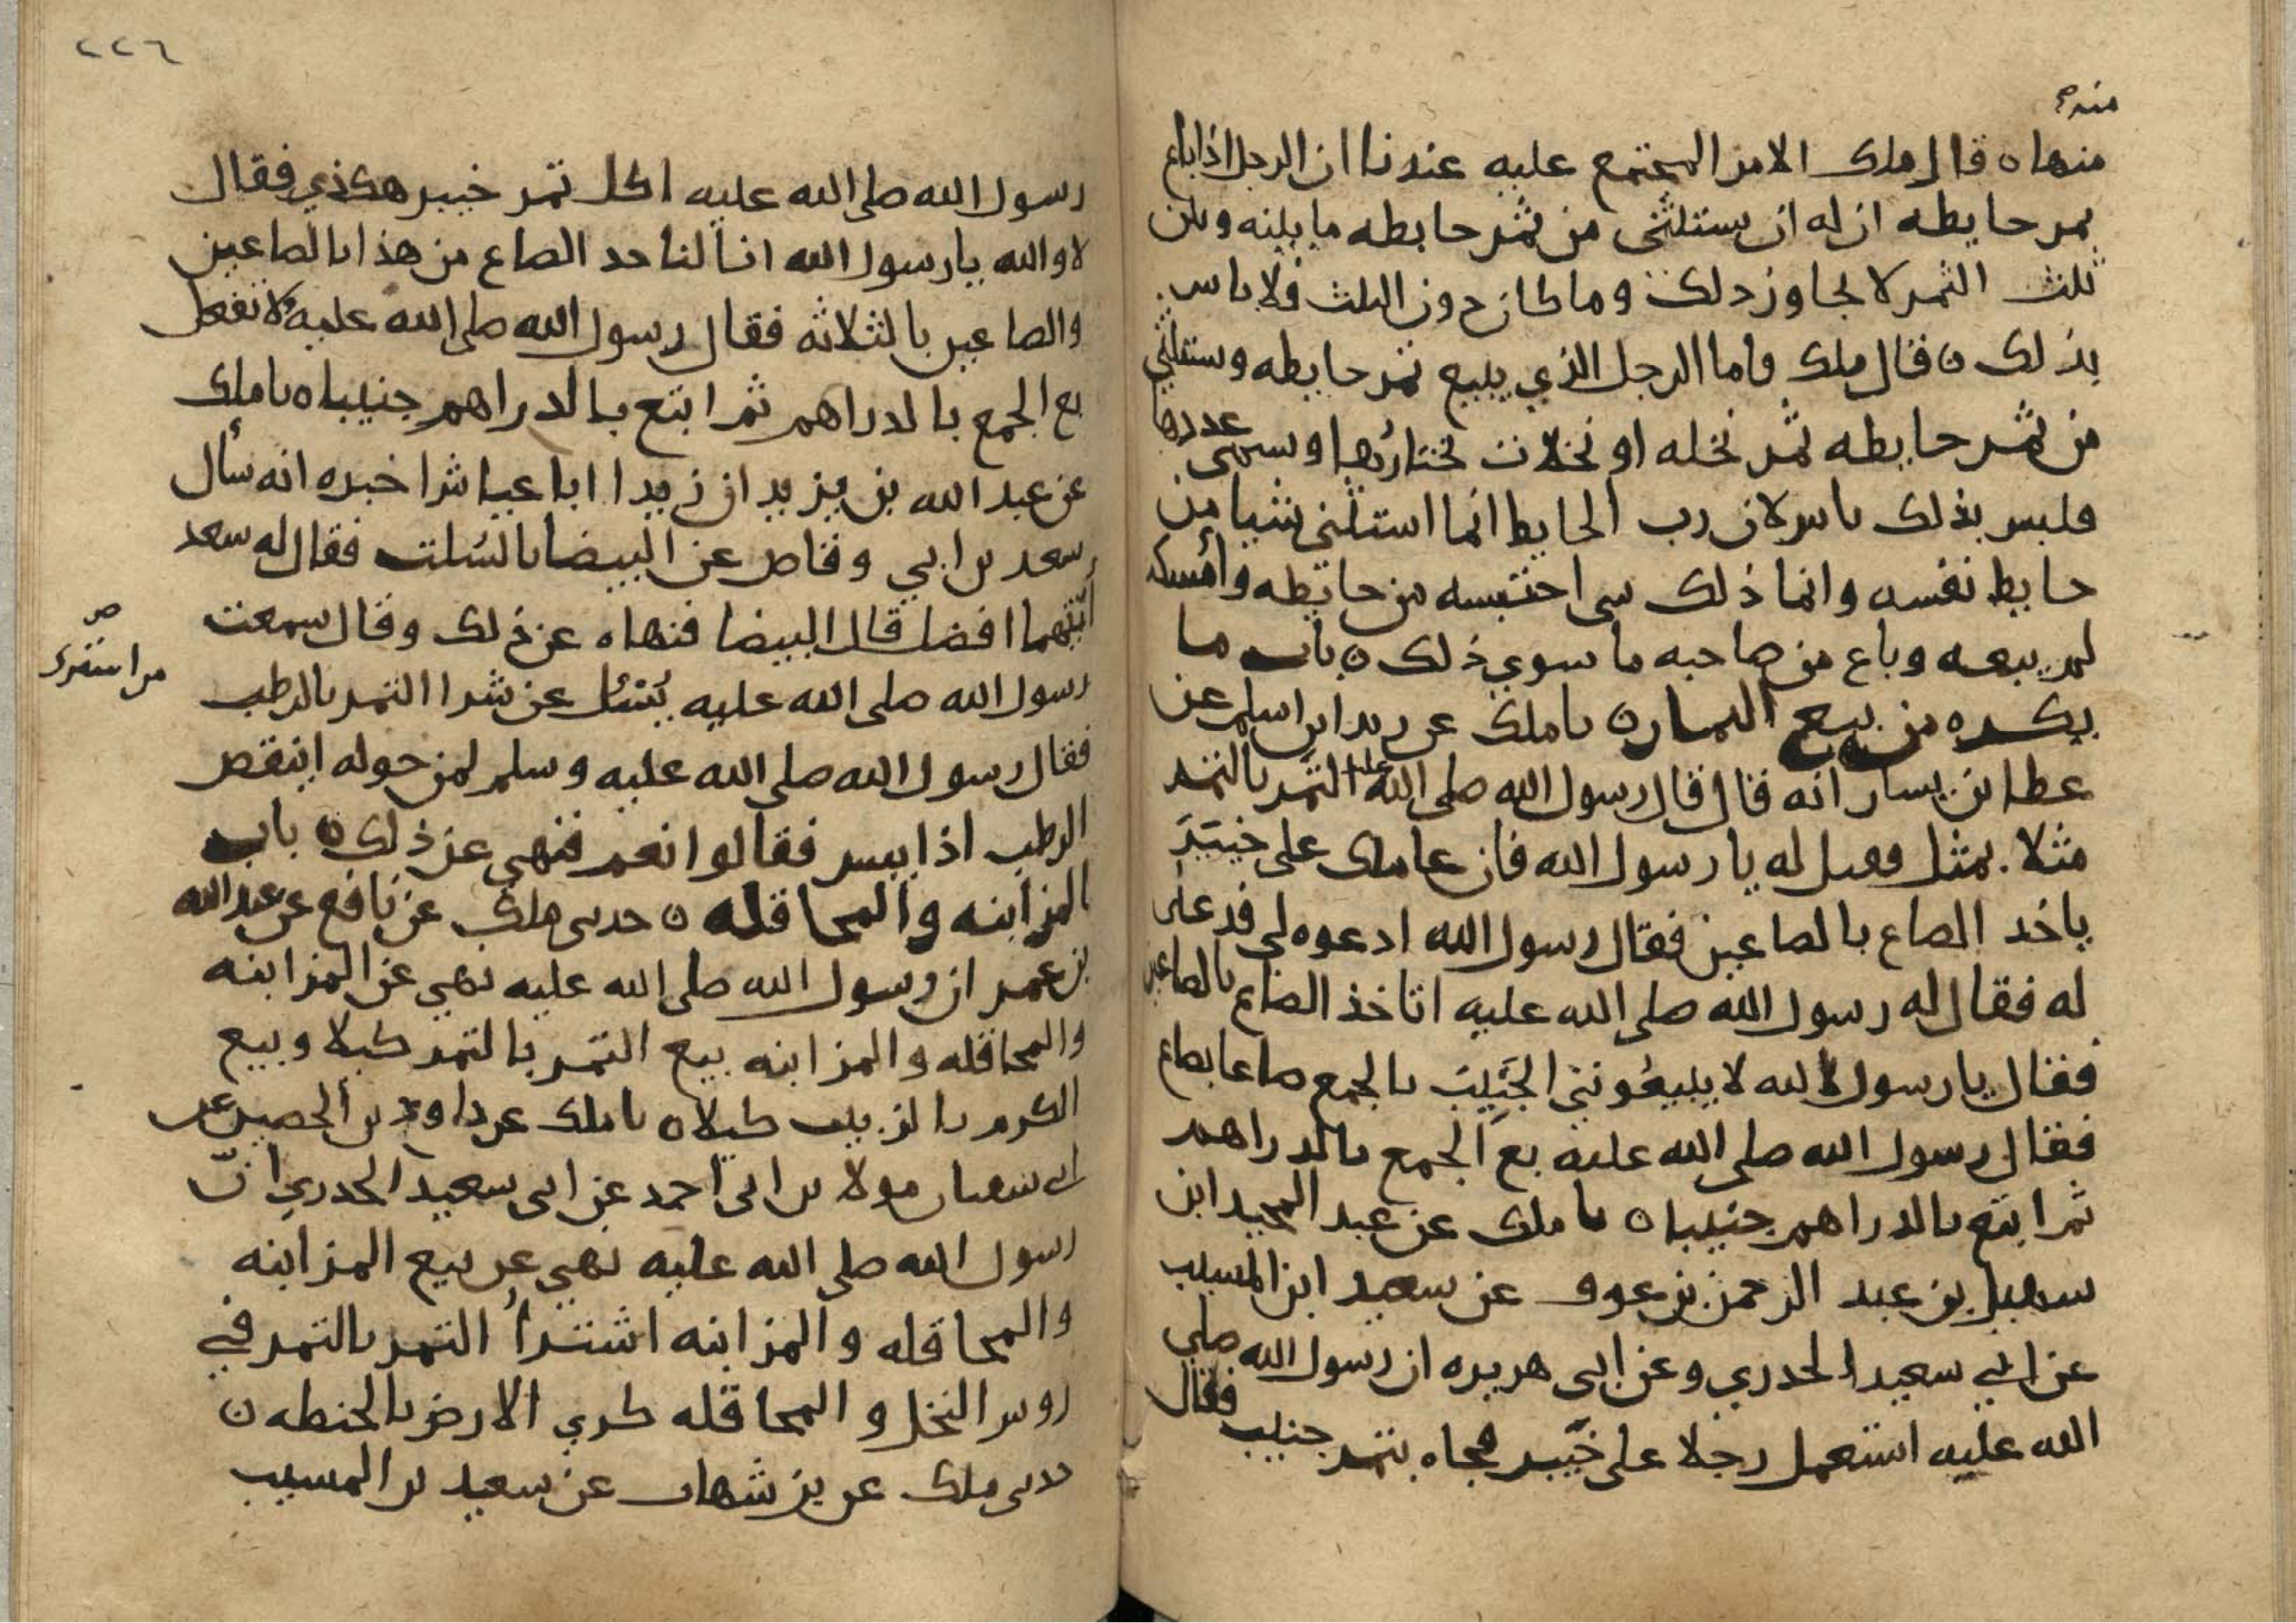 منه
منها ٥ قال ملك الامر المجتمع عليه عندنا ان الرجل اذا باع
ثمر حايطه ان له ان يستثني من ثمر حايطه ما بينه وبين
ثلث الثمر لا يجاوز ذلك وما كان دون الثلث فلا باس
بذلك ٥ قال ملك واما الرجل الذي يبيع ثمر حايطه ويستثني
من ثمر حايطه ثمر نخله او نخلات يختارها ويسمي عددها
فليس بذلك باس لان رب الحايط انما استثني شيا من
حايط نفسه وانما ذلك شي احتبسه من حايطه وامسكه
لم يبعه وباع من صاحبه ما سوي ذلك ٥ باب ما
يكره من بيع الثماره نا ملك عن زيد ابن اسلم عن
عطا ابن يسار انه قال قال رسول الله صلى الله عليه التمر بالتمر
مثلا بمثل فقيل له يا رسول الله فان عاملك على خيبر
ياخذ الصاع بالصاعين فقال رسول الله ادعوه لي فدعي
له فقال له رسول الله صلى الله عليه اتاخذ الصاع بالصاعين
فقال يا رسول الله لا يبيعونني الجنيب بالجمع صاعا بصاع
فقال رسول الله صلى الله عليه بع الجمع بالدراهم
ثم ابتع بالدراهم جنيبا ٥ نا ملك عن عبد المجيد ابن
سهيل بن عبد الرحمن بن عوف عن سعيد ابن المسيب
عن ابي سعيد الخدري وعن ابي هريره ان رسول الله صلي
الله عليه استعمل رجلا على خيبر فجاه بتمر جنيب فقال
٢٢٦
رسول الله صلى الله عليه اكل تمر خيبر هكذي فقال
لا والله يا رسول الله انا لناخد الصاع من هذا بالصاعين
والصاعين بالثلاثه فقال رسول الله صلى الله عليه لا تفعل
بع الجمع بالدراهم ثم ابتع بالدراهم جنيبا ٥ نا ملك
عن عبد الله بن يزيد ان زيدا ابا عياش اخبره انه سأل
سعد بن ابي وقاص عن البيضا بالسُلت فقال له سعد
أيتهما افضل قال البيضا فنهاه عن ذلك وقال سمعت
رسول الله صلى الله عليه يُسْئل عن شرا التمر بالرطب
فقال رسول الله صلى الله عليه وسلم لمن حوله اينقص
الرطب اذا يبس فقالوا نعم فنهي عن ذلك ٥ باب
المزابنه والمحاقله ٥ حدثني ملك عن نافع عن عبد الله
بن عمر ان رسول الله صلى الله عليه نهي عن المزابنه
والمحاقله والمزابنه بيع الثمر بالتمر كيلا وبيع
الكرم بالزبيب كيلا ٥ نا ملك عن داود بن الحصين عن
ابي سفيان مولا بن ابي احمد عن ابي سعيد الخدري انّ
رسول الله صلى الله عليه نهي عن بيع المزابنه
والمحاقله والمزابنه اشترأ الثمر بالتمر في
روس النخل والمحاقله كري الارض بالحنطه ٥
حدثني ملك عن بن شهاب عن سعيد بن المسيب